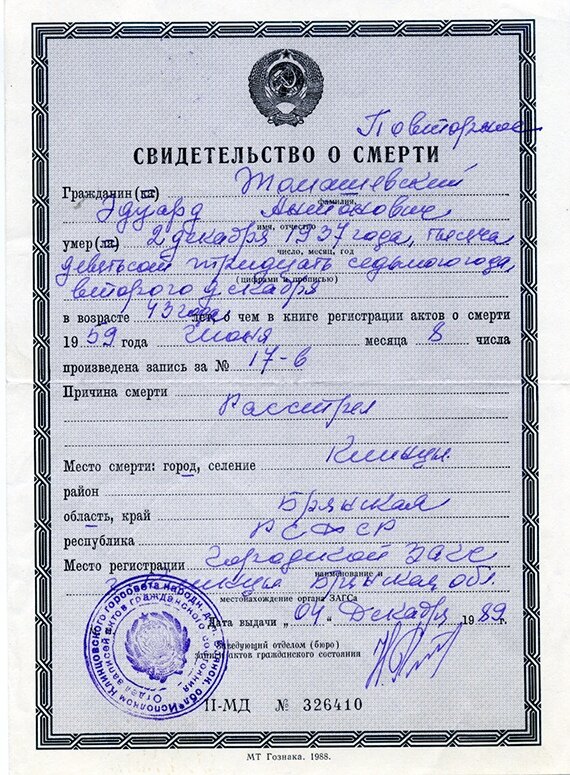 Повторное
СВИДЕТЕЛЬСТВО О СМЕРТИ
Гражданин (ка) Томашевский
фамилия,
Эдуард Антонович
имя, отчество
умер (ла) 2 декабря 1937 года, тысяча
число, месяц, год
девятьсот тридцать седьмого года,
(цифрами и прописью)
второго декабря
в возрасте 43 года лет, о чем в книге регистрации актов о смерти
1959 года Июня месяца 8 числа
произведена запись за № 17-в
Причина смерти
Расстрел
Место смерти: город, селение Клинцы
район
область, край Брянская
республика РСФСР
Место регистрации Городской ЗАГС
наименование и
г. Клинцы Брянской обл.
местонахождение органа ЗАГСа
Дата выдачи „04“ Декабря 1989.
Заведующий отделом (бюро)
записи актов гражданского состояния
II-МД № 326410
МТ Гознака. 1988.